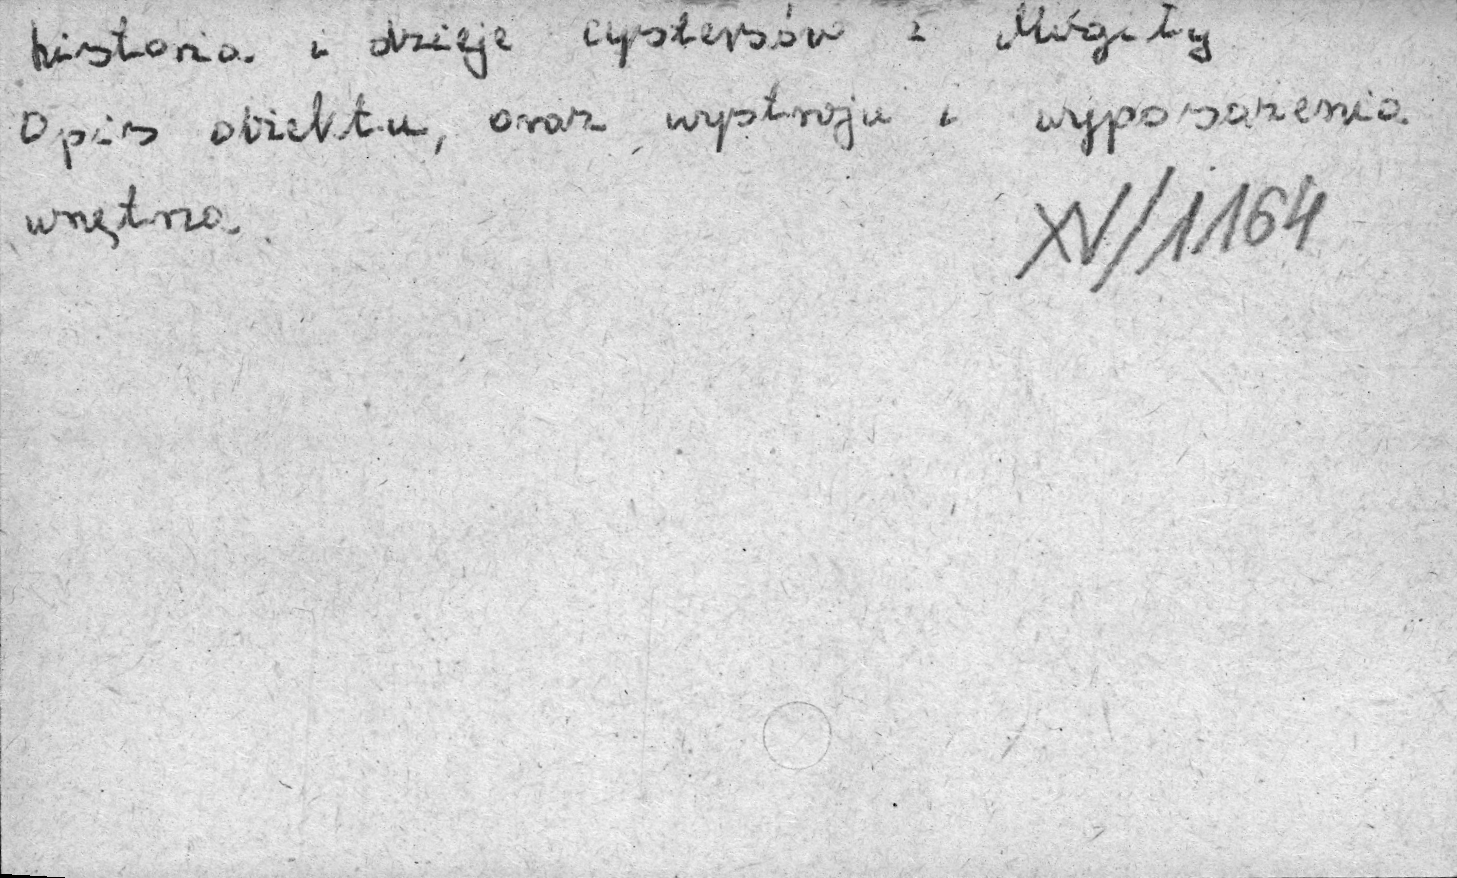 historia i dzieje cystersów z Mogiły
Opis obiektu, oraz wystroju i wyposażenia
wnętrza.
XV/1164